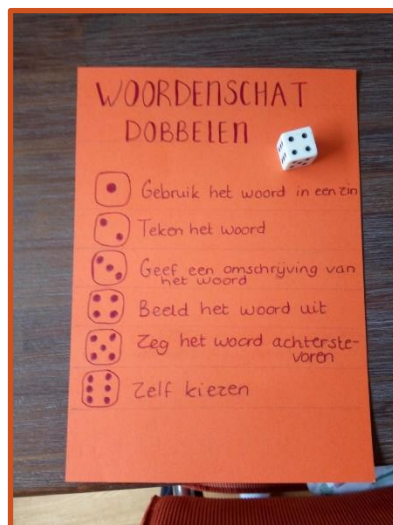 WOORDENSCHAT
DOBBELEN
Gebruik het woord in een zin
Teken het woord
Geef een omschrijving van
het woord
Beeld het woord uit
Zeg het woord achterste-
voren
Zelf kiezen